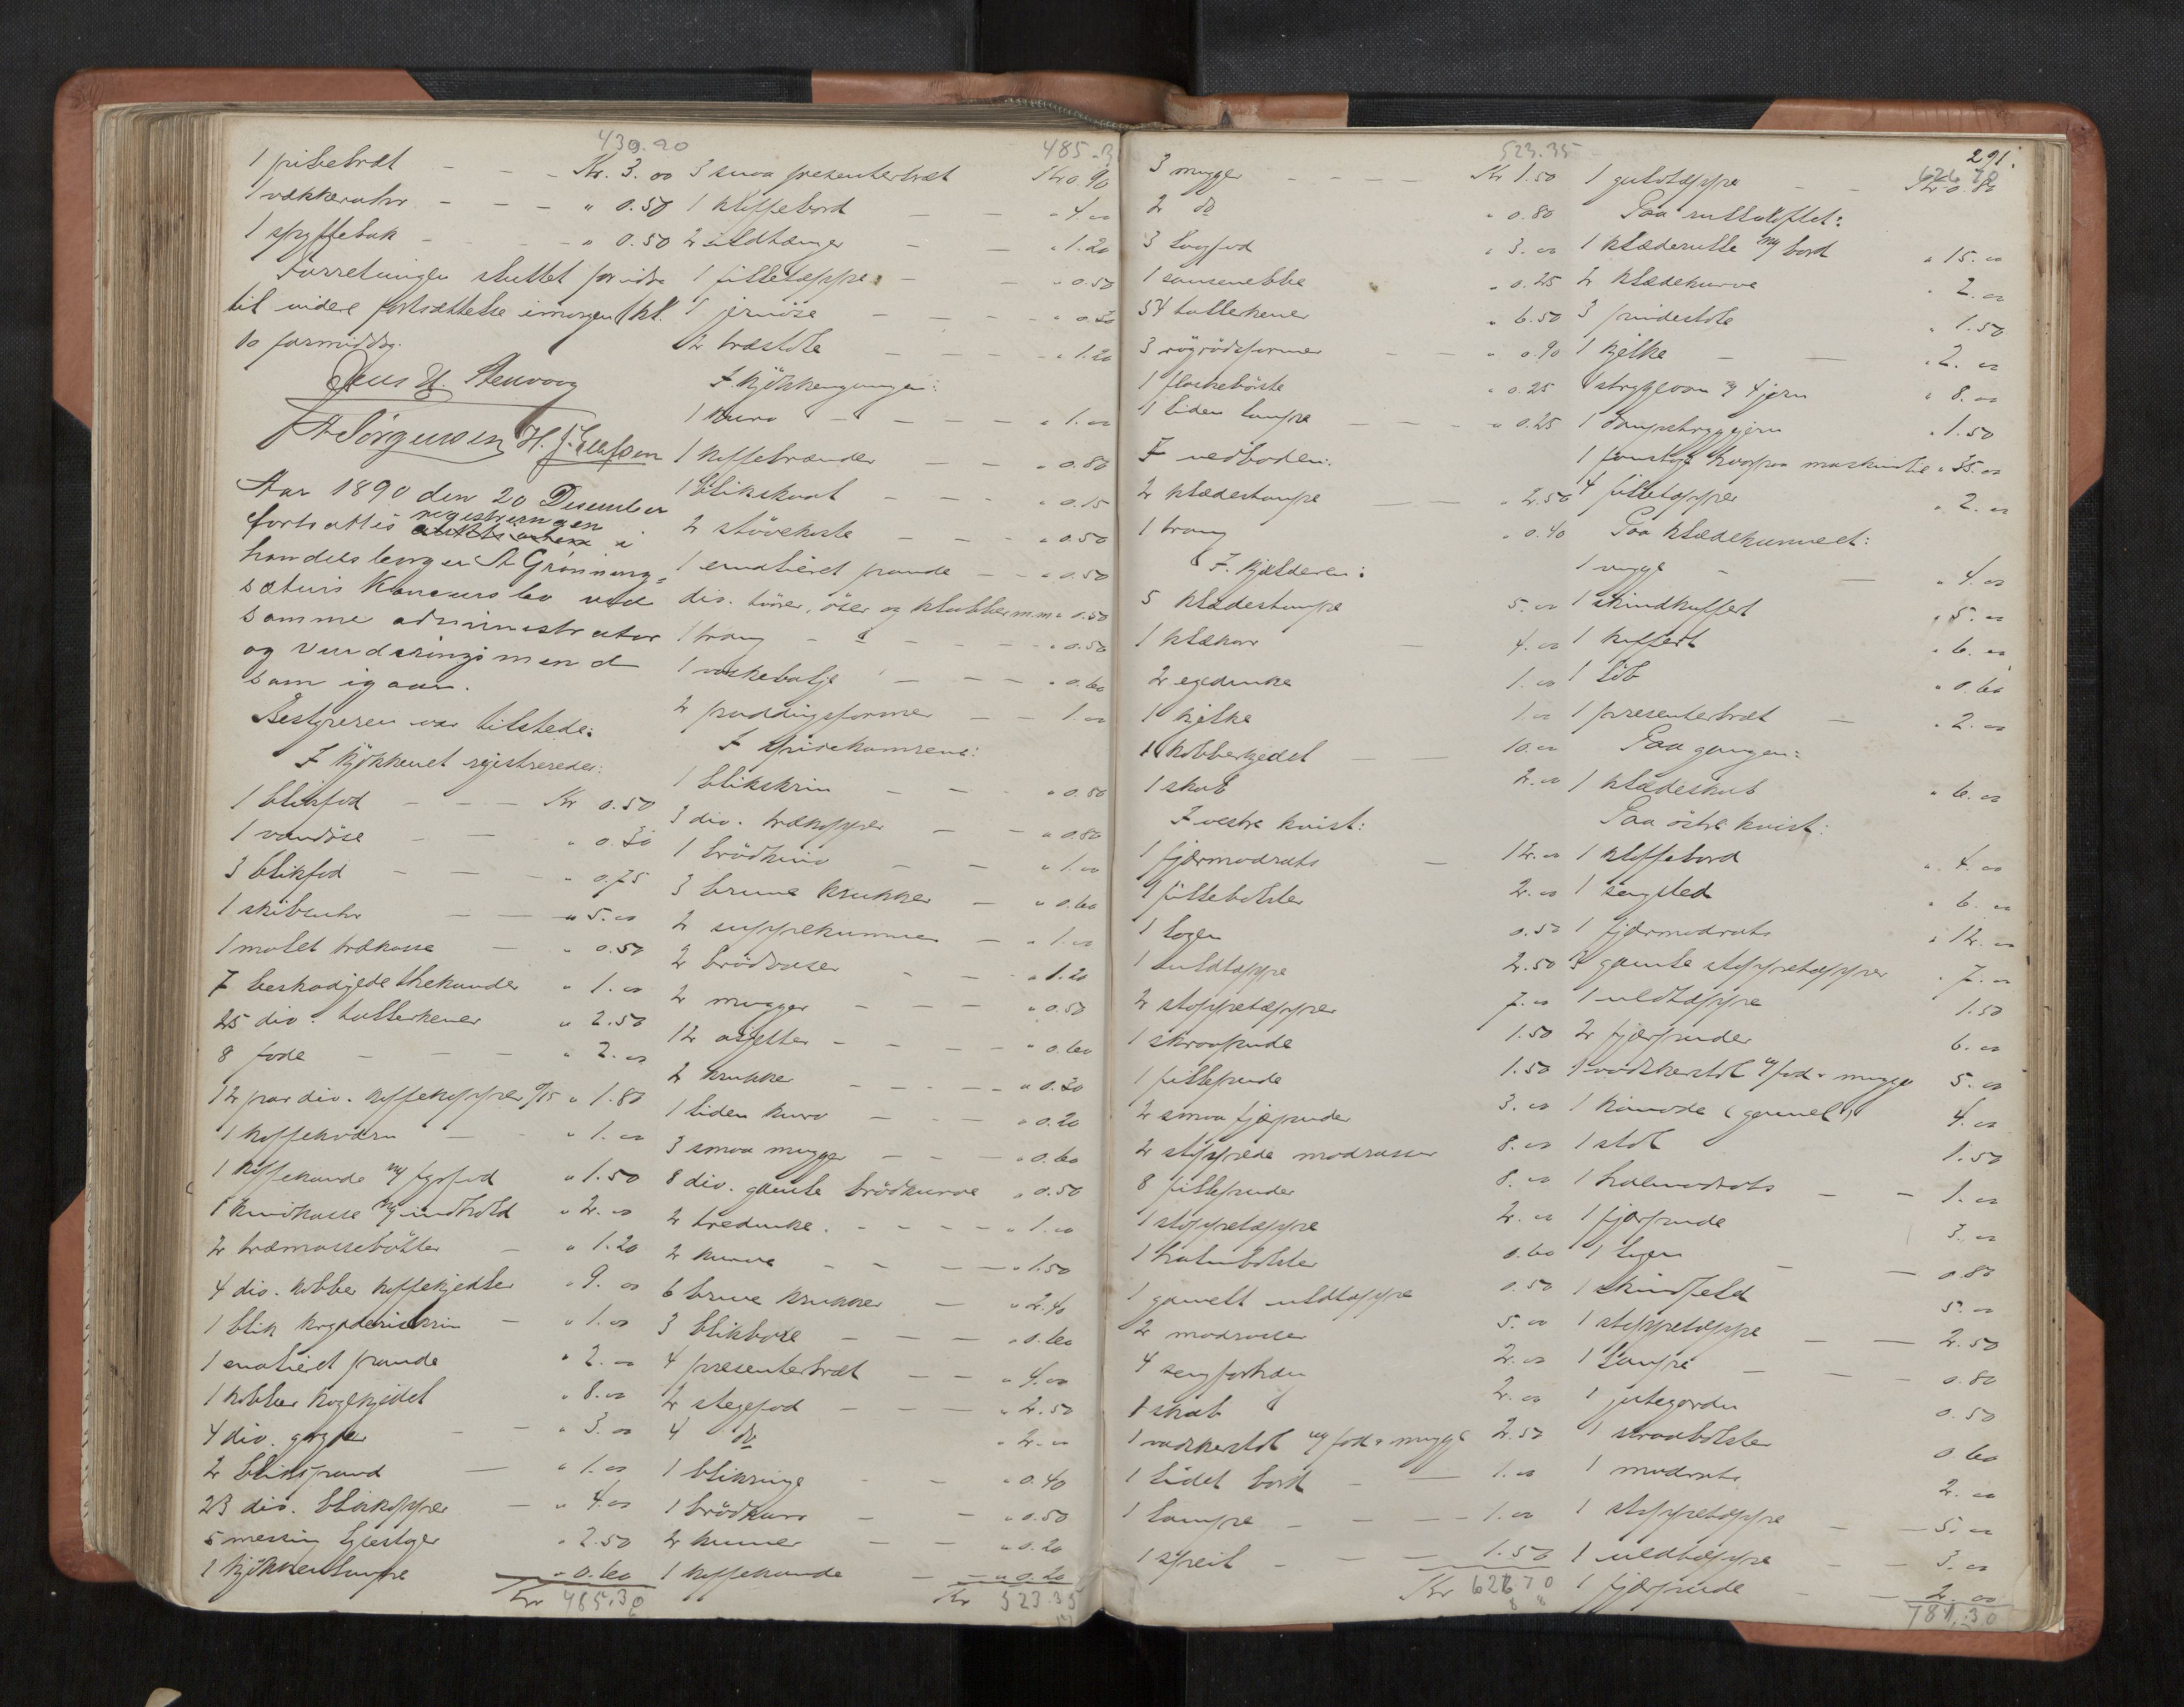 439.20
1 pibebræt - - Kr. 3.00
1 vækkeruhr - - - " 0.50
1 spyttebak - - - " 0.50
Forretningen sluttet for idag
til videre fortsættelse imorgen kl.
10 formiddag.
Jens H.
A Sörgensen H. J. Ellefsen
Aar 1890 den 20 Desember
fortsattes registreringen i
handelsborger A Grönning-
sæters Konkursbo ved
samme administrator
og vurderingsmænd
som igaar.
Bestyreren var tilstede.
I Kjökkenet registreredes:
1 blikfad - - - Kr 0.50
1 vandöse - - " 0.30
3 blikfad - - " 0.75
1 skibsuhr - - " 5.00
1 malet trækasse - " 0.50
7 beskadigede thekander " 1.00
25 div. tallerkener " 2.50
8 fade - - - " 2.00
12 par div. kaffekopper a/15 " 1.80
1 kaffekværn - - " 1.00
1 kaffekande og fyrfad " 1.50
1 knivkasse m/ indhold " 2.00
2 træmassebötter - " 1.20
4 div. kobber kaffekjedler " 9.00
1 blik - " 1.00
1 emaljeret pande " 2.00
1 kobber kogekjedel " 8.00
4 div. gryder - - " 3.00
2 blikspand - " 1.00
23 div. blikkopper - " 4.00
5 messing lysestager " 2.50
1 kjökkenlampe " 0.60
Kr 485.30
485.3
3 smaa presenterbræt Kr 0.90
1 klaffebord - - " 4.00
2 ildtænger - " 1.20
1 filletæppe - - " 0.50
1 jernöse - - - " 0.30
2 træstole - - - " 1.20
I Kjökkengangen:
1 kurv - - - - " 1.00
1 kaffebrænder - - " 0.80
1 - - - " 0.15
2 stövekoste - - - " 0.50
1 emaljeret pande - - " 0.50
div. tvarer, öser og klubber m.m. " 0.50
1 traug - - - - " 0.50
1 vaskebalje - - - " 0.60
2 puddingsformer - - 1.00
I spisekamrene:
1 blikskrin - - - " 0.80
3 div. trækopper - - " 0.80
1 brödkniv - - " 1.00
3 brune krukker - " 0.60
2 suppekummer - " 1.00
2 brödvaser - - " 1.20
2 mugger - - - " 0.50
12 asjetter - - - - " 0.60
2 krukker - - - - " 0.30
1 liden kurv - - - " 0.20
3 smaa mugger - - - " 0.60
8 div. gamle brödkurve " 0.50
2 tredunke. - - - - " 1.00
2 kurve - - - - " 1.50
6 brune krukker - " 2.40
3 blikboxe - - - " 0.60
4 presenterbræt - - " 4.00
2 stegefad - - - " 2.50
4 do " 2.00
1 - - " 0.40
1 brödkurv - - " 0.50
2 kummer - - " 0.20
1 kaffekande - " 0.20
Kr 523.35
523.35
3 mugger - - - - Kr 1.50
2 do " 0.80
3 laagfad " 3.00
1 sausenebbe " 0.25
54 tallerkener " 6.50
3 rögrödsformer - - " 0.90
1 flaskebörste " 0.25
1 liden lampe - - - " 0.25
I vedboden:
2 klædestampe - - " 2.50
1 traug " 0.40
I Kjælderen:
5 klædestampe 5.00
1 klækar - 4.00
2 egedunke 1.00
1 kjelke 1.00
1 kobberkjedel - - 10.00
1 skab 2.00
I vestre kvist:
1 fjærmadrats - 12.00
9 fillebolster 2.00
1 lagen 0.50
1 uldtæppe 2.50
2 stoppetæpper 7.00
1 skraapude 1.50
1 fillepude 1.50
2 smaa fjærpuder 3.00
2 stoppede madrasser 8.00
8 fillepuder 8.00
1 stoppetæppe 2.00
1 halmbolster 0.60
1 gammelt uldtæppe 0.50
2 madrasser 5.00
4 sengforhæng 2.00
1 skab 2.00
1 vaskestol m/ fad & mugge 2.50
1 lidet bord - - 1.00
1 lampe - - - - 1.00
1 speil - - - - 1.50
Kr 626.70
8 8
291.
626 70
1 gulvtæppe - - Kr 0.80
Paa rulleloftet:
1 klæderulle m/ bord " 15.00
2 klædekurve " 2.00
3 pindestole " 1.50
1 kjelke - - " 2.00
1 strygeovn & 4 jern " 8.00
1 dampstrygejern " 1.50
" 35.00
4 filletæpper " 2.00
Paa klædekammeret:
1 vugge - - " 4.00
1 skindkuffert " 5.00
1 kuffert " 6.00
1 " 0.60
1 presenterbræt - " 2.00
Paa gangen:
1 klædeskab " 6.00
Paa östre kvist:
1 klaffebord " 4.00
1 sengsted " 6.00
1 fjærmadrats " 12.00
3 gamle stoppetæpper " 7.00
1 uldtæppe 1.50
2 fjærpuder 6.00
1 vaskestol m/ fad & mugge 5.00
1 komode (gammel) 4.00
1 stol 1.50
1 halmmadrats - - 1.00
1 fjærpude 3.00
1 lagen - - 0.80
1 skindfeld 5.00
1 stoppetæppe - - 2.50
1 lampe - - - 0.80
1 jutegardin 0.50
1 skraabolster 0.60
1 madrats 2.00
1 stoppetæppe - - 5.00
1 uldtæppe - - 3.00
1 fjærpude - - 2.00
781.30